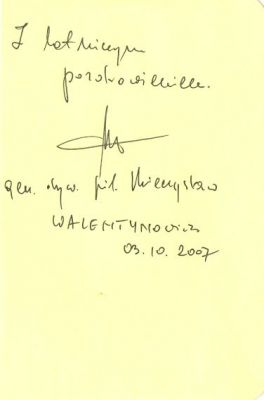 Z lotniczym
pozdrowieniem.
gen. dyw. pil. Mieczysław
WALENTYNOWICZ
03.10.2007